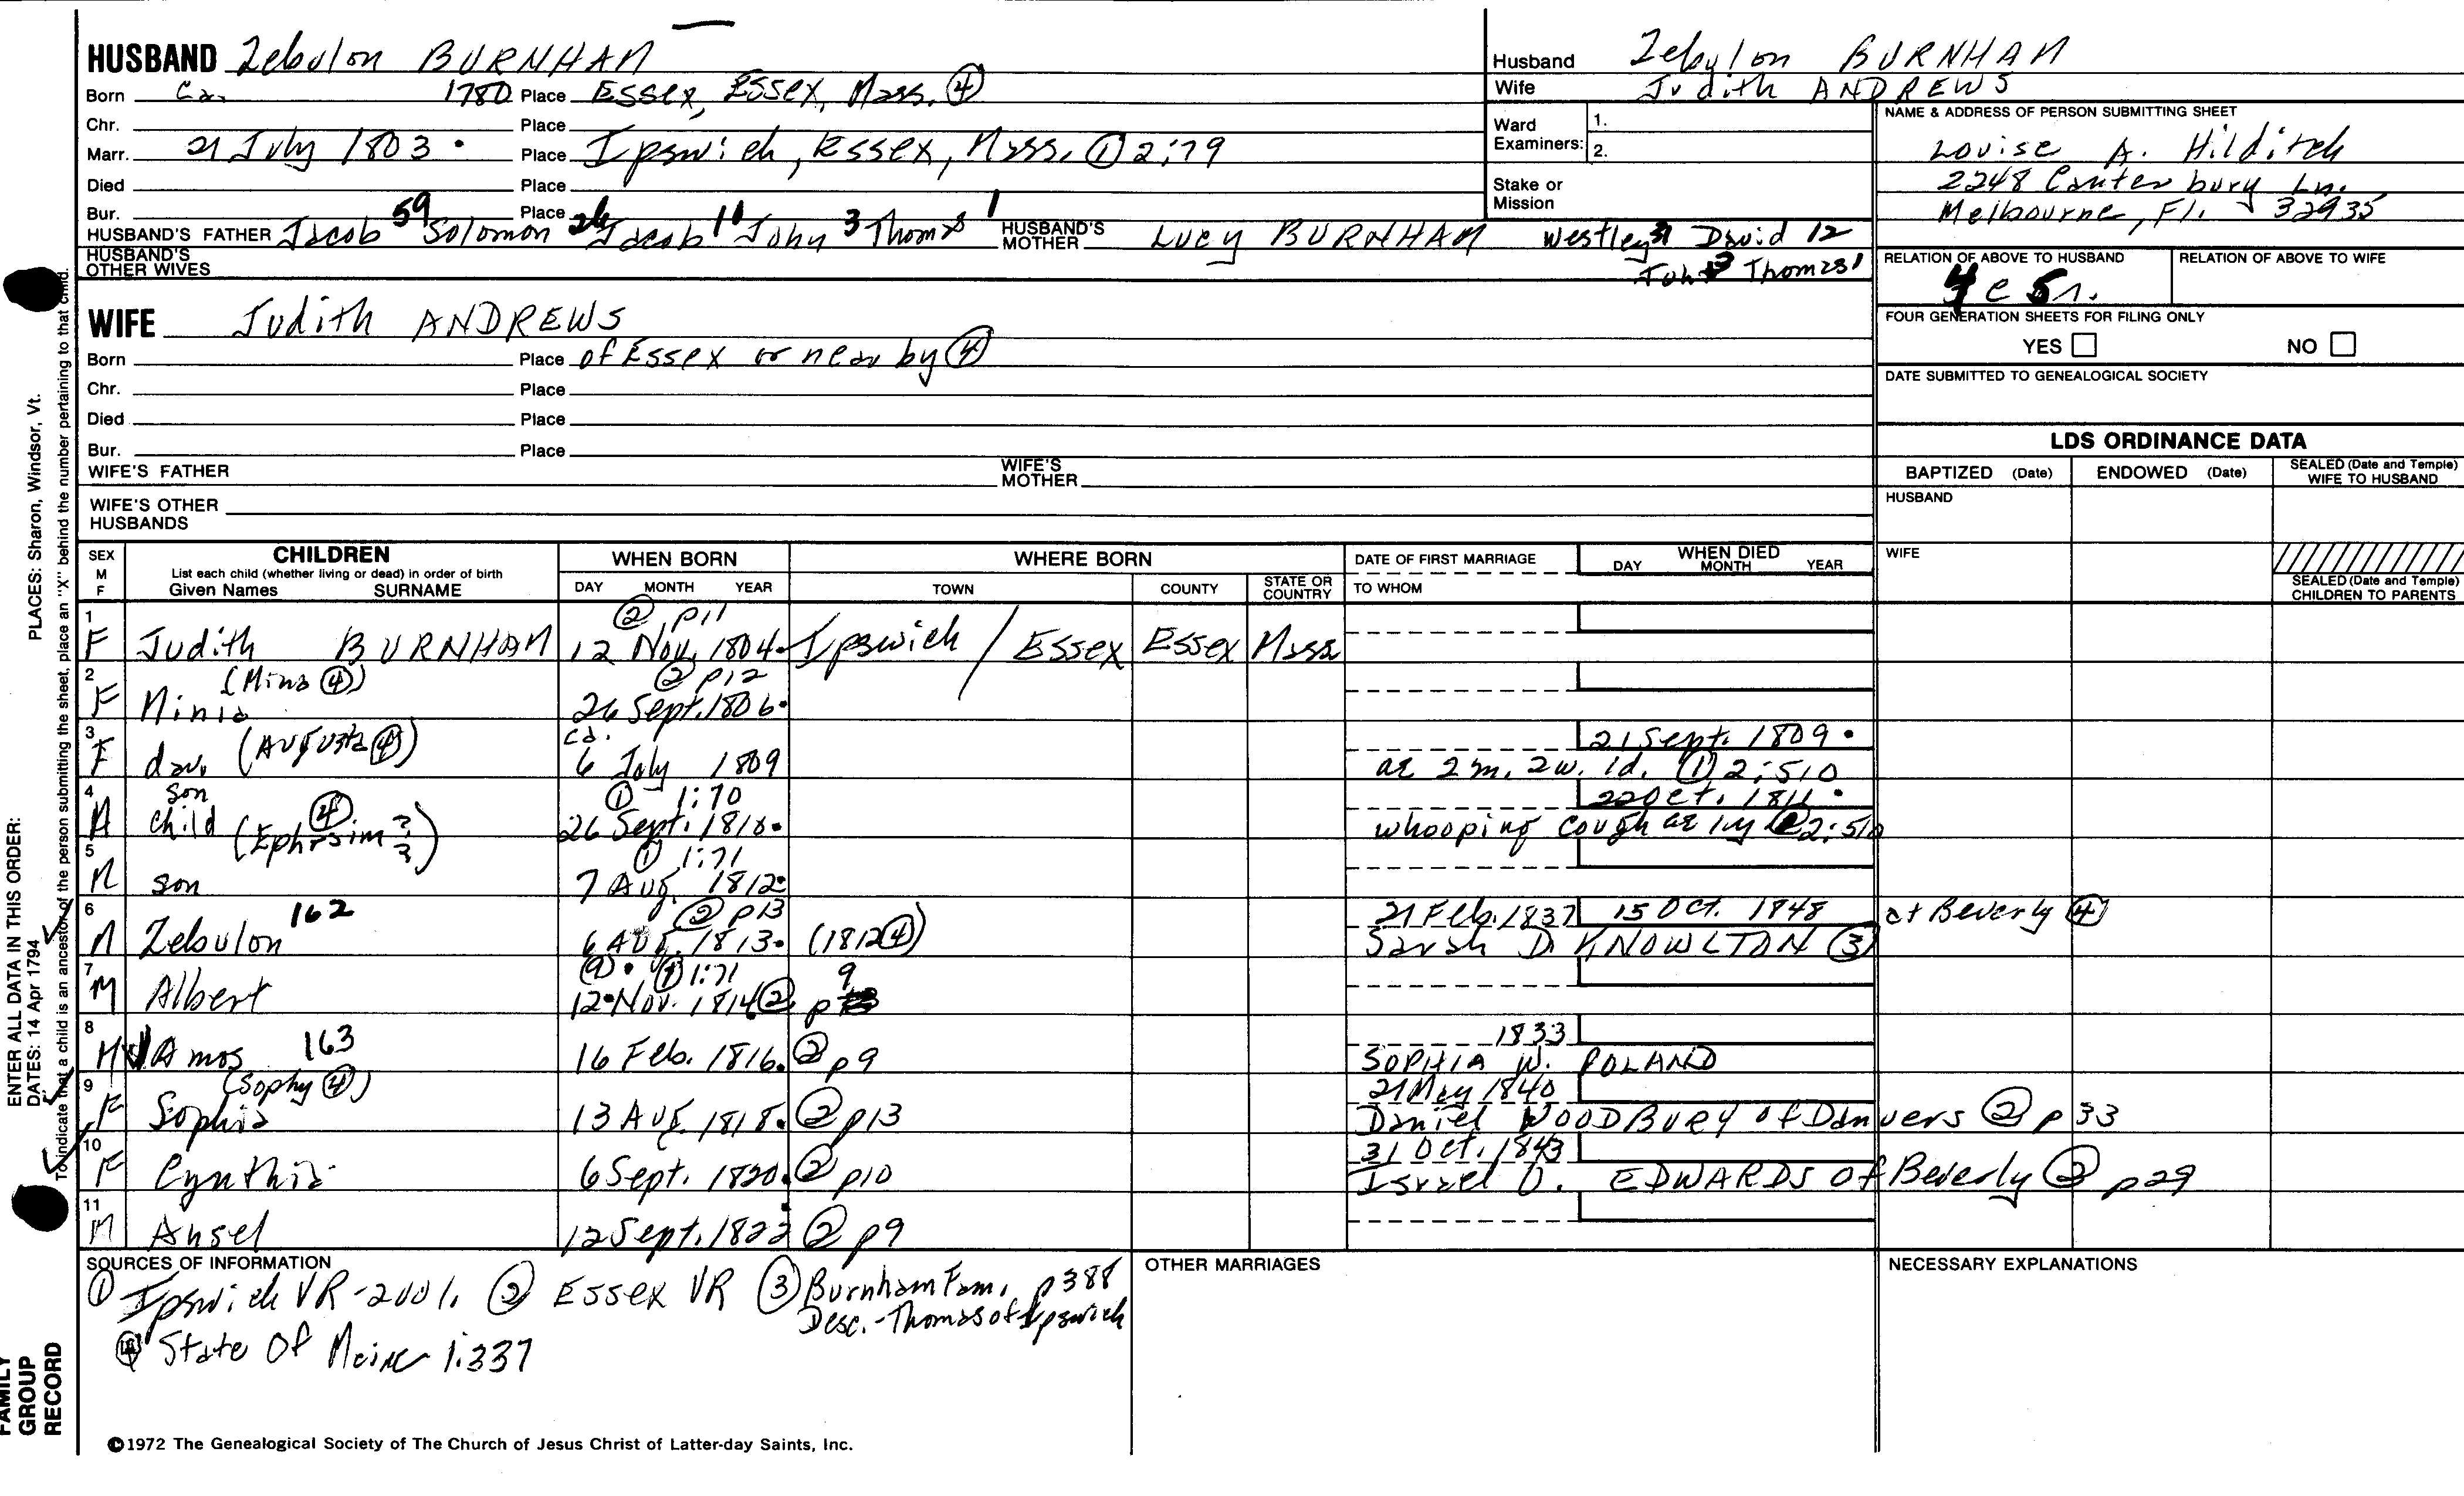 HUSBAND Zebulon BURNHAM
Born Ca. 1780 Place Essex, Essex, Mass. ④
Chr. Place
Marr. 21 July 1803 • Place Ipswich, Essex, Mass. ① 2:79
Died Place
Bur. Place
HUSBAND'S FATHER Jacob 59 Solomon 26 Jacob 11 John 3 Thomas 1 HUSBAND'S MOTHER Lucy BURNHAM Westley David 12
John 3 Thomas 1
HUSBAND'S OTHER WIVES
WIFE Judith ANDREWS
Born Place of Essex or near by ④
Chr. Place
Died Place
Bur. Place
WIFE'S FATHER WIFE'S MOTHER
WIFE'S OTHER HUSBANDS
Husband Zebulon BURNHAM
Wife Judith ANDREWS
Ward Examiners: 1.
2.
Stake or Mission
NAME & ADDRESS OF PERSON SUBMITTING SHEET
Louise A. Hilditch
2248 Canterbury Ln.
Melbourne, Fl. 32935
RELATION OF ABOVE TO HUSBAND RELATION OF ABOVE TO WIFE
4 c 5 r.
FOUR GENERATION SHEETS FOR FILING ONLY
YES NO
DATE SUBMITTED TO GENEALOGICAL SOCIETY
LDS ORDINANCE DATA
BAPTIZED (Date) ENDOWED (Date) SEALED (Date and Temple) WIFE TO HUSBAND
HUSBAND
WIFE
SEALED (Date and Temple) CHILDREN TO PARENTS
SEX M F CHILDREN WHEN BORN WHERE BORN DATE OF FIRST MARRIAGE WHEN DIED
List each child (whether living or dead) in order of birth
Given Names SURNAME DAY MONTH YEAR TOWN COUNTY STATE OR COUNTRY TO WHOM DAY MONTH YEAR
② p11
1 F Judith BURNHAM 12 Nov. 1804 • Ipswich / Essex Essex Mass
(Mina ④) ② p12
2 F Minia 26 Sept. 1806 •
ca. 21 Sept. 1809 •
3 F dau. (Augusta ④) 6 July 1809 ae 2 m. 2w. 1d. ① 2:510
son ① 1:70 22 Oct. 1811 •
4 M child (Ephraim ④ ??) 26 Sept. 1810 • whooping cough ae 1y 2:510
① 1:71
5 M son 7 Aug. 1812 •
162 ② p13 21 Feb. 1837 15 Oct. 1848 at Beverly ④
6 M Zebulon 6 Aug. 1813 • (1812 ④) Sarah D. KNOWLTON ③
(9) • ① 1:71 9
7 M Albert 12 • Nov. 1814 ② p
163 1833
8 M Amos 16 Feb. 1816. ② p9 SOPHIA W. POLAND
(Sophy ④) 21 May 1840
9 F Sophia 13 Aug. 1818. ② p13 Daniel WOODBURY of Danvers ② p33
31 Oct. 1843
10 F Cynthia 6 Sept. 1820. ② p10 Israel O. EDWARDS of Beverly ② p29
11 M Ansel 12 Sept. 1822 ② p9
SOURCES OF INFORMATION OTHER MARRIAGES NECESSARY EXPLANATIONS
① Ipswich VR - 2 vol. ② Essex VR ③ Burnham Fam. p388
Desc. - Thomas of Ipswich
④ State Of Maine 1:337
©1972 The Genealogical Society of The Church of Jesus Christ of Latter-day Saints, Inc.
PLACES: Sharon, Windsor, Vt.
ENTER ALL DATA IN THIS ORDER:
DATES: 14 Apr 1794
To indicate that a child is an ancestor of the person submitting the sheet, place an "X" behind the number pertaining to that child.
FAMILY
GROUP
RECORD